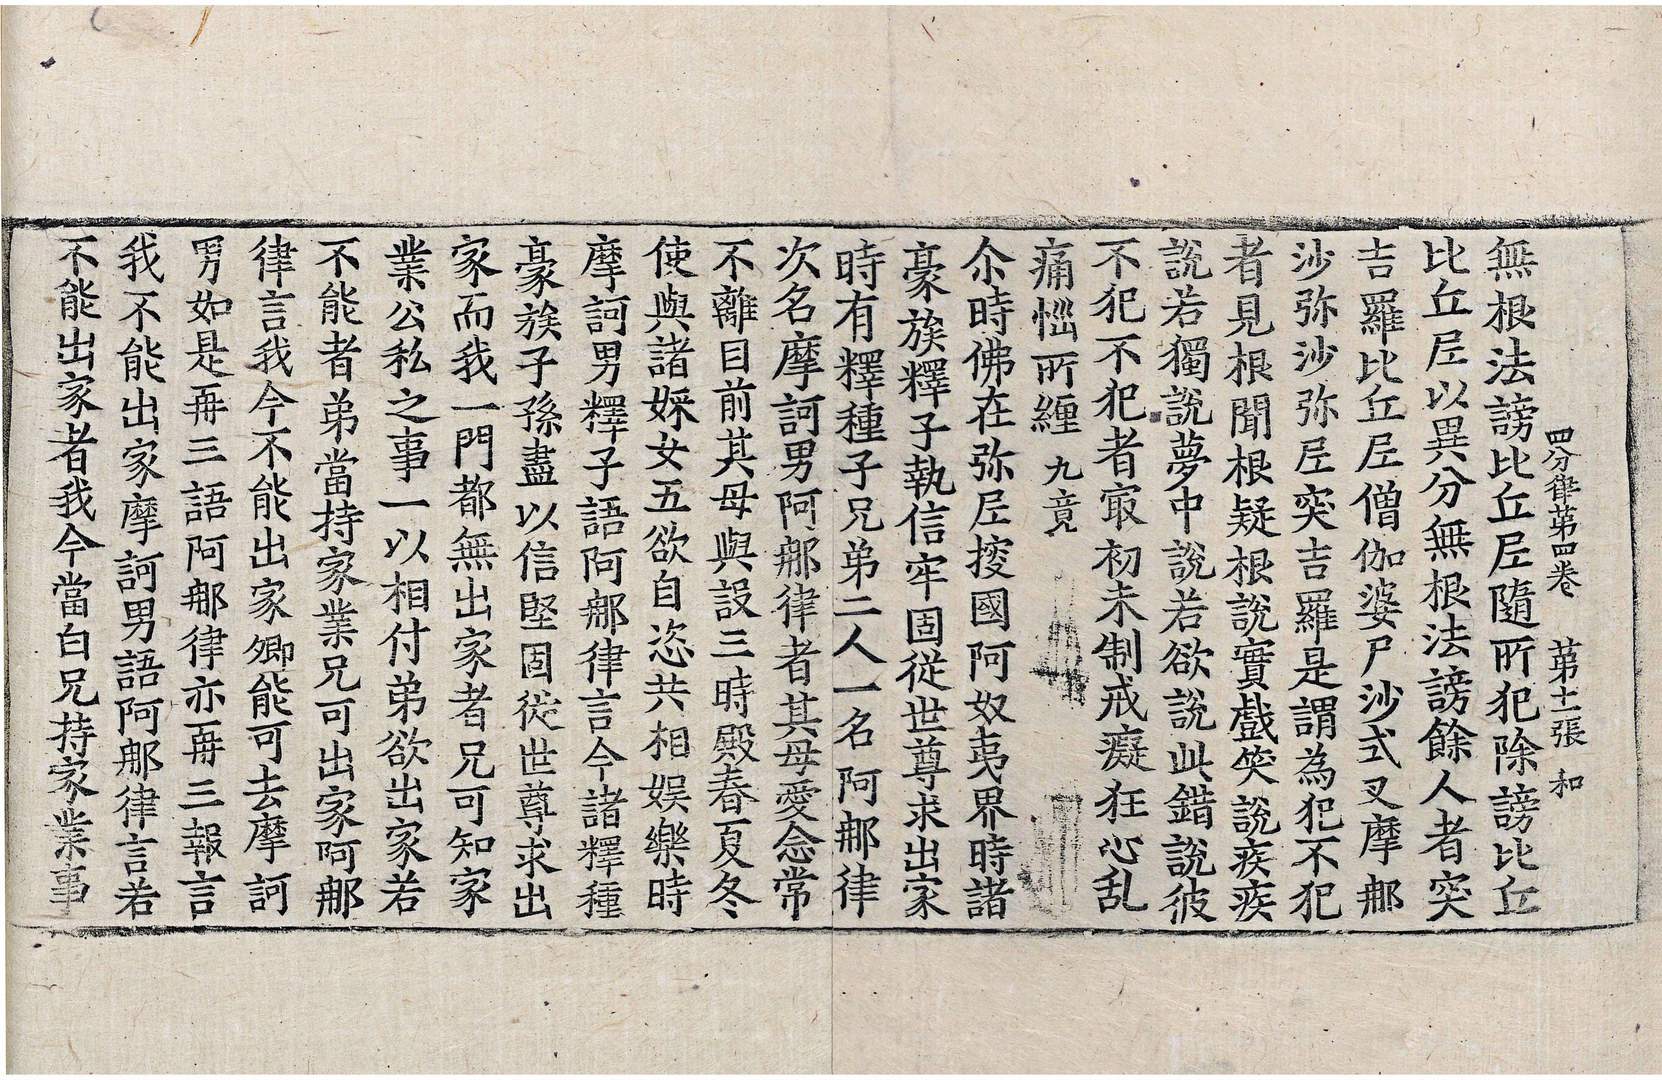 四分律第四卷　第十一張　和
無根法謗比丘尼隨所犯除謗比丘
比丘尼以異分無根法謗餘人者突
吉羅比丘尼僧伽婆尸沙式叉摩那
沙弥沙弥尼突吉羅是謂為犯不犯
者見根聞根疑根說實戲笑說疾疾
說若獨說夢中說若欲說此錯說彼
不犯不犯者冣初未制戒癡狂心乱
痛惱所纏 九竟
尒時佛在弥尼搜國阿奴夷界時諸
豪族釋子執信牢固從世尊求出家
時有釋種子兄弟二人一名阿那律
次名摩訶男阿那律者其母愛念常
不離目前其母與設三時殿春夏冬
使與諸婇女五欲自恣共相娛樂時
摩訶男釋子語阿那律言今諸釋種
豪族子孫盡以信堅固從世尊求出
家而我一門都無出家者兄可知家
業公私之事一以相付弟欲出家若
不能者弟當持家業兄可出家阿那
律言我今不能出家卿能可去摩訶
男如是再三語阿那律亦再三報言
我不能出家摩訶男語阿那律言若
不能出家者我今當白兄持家業事